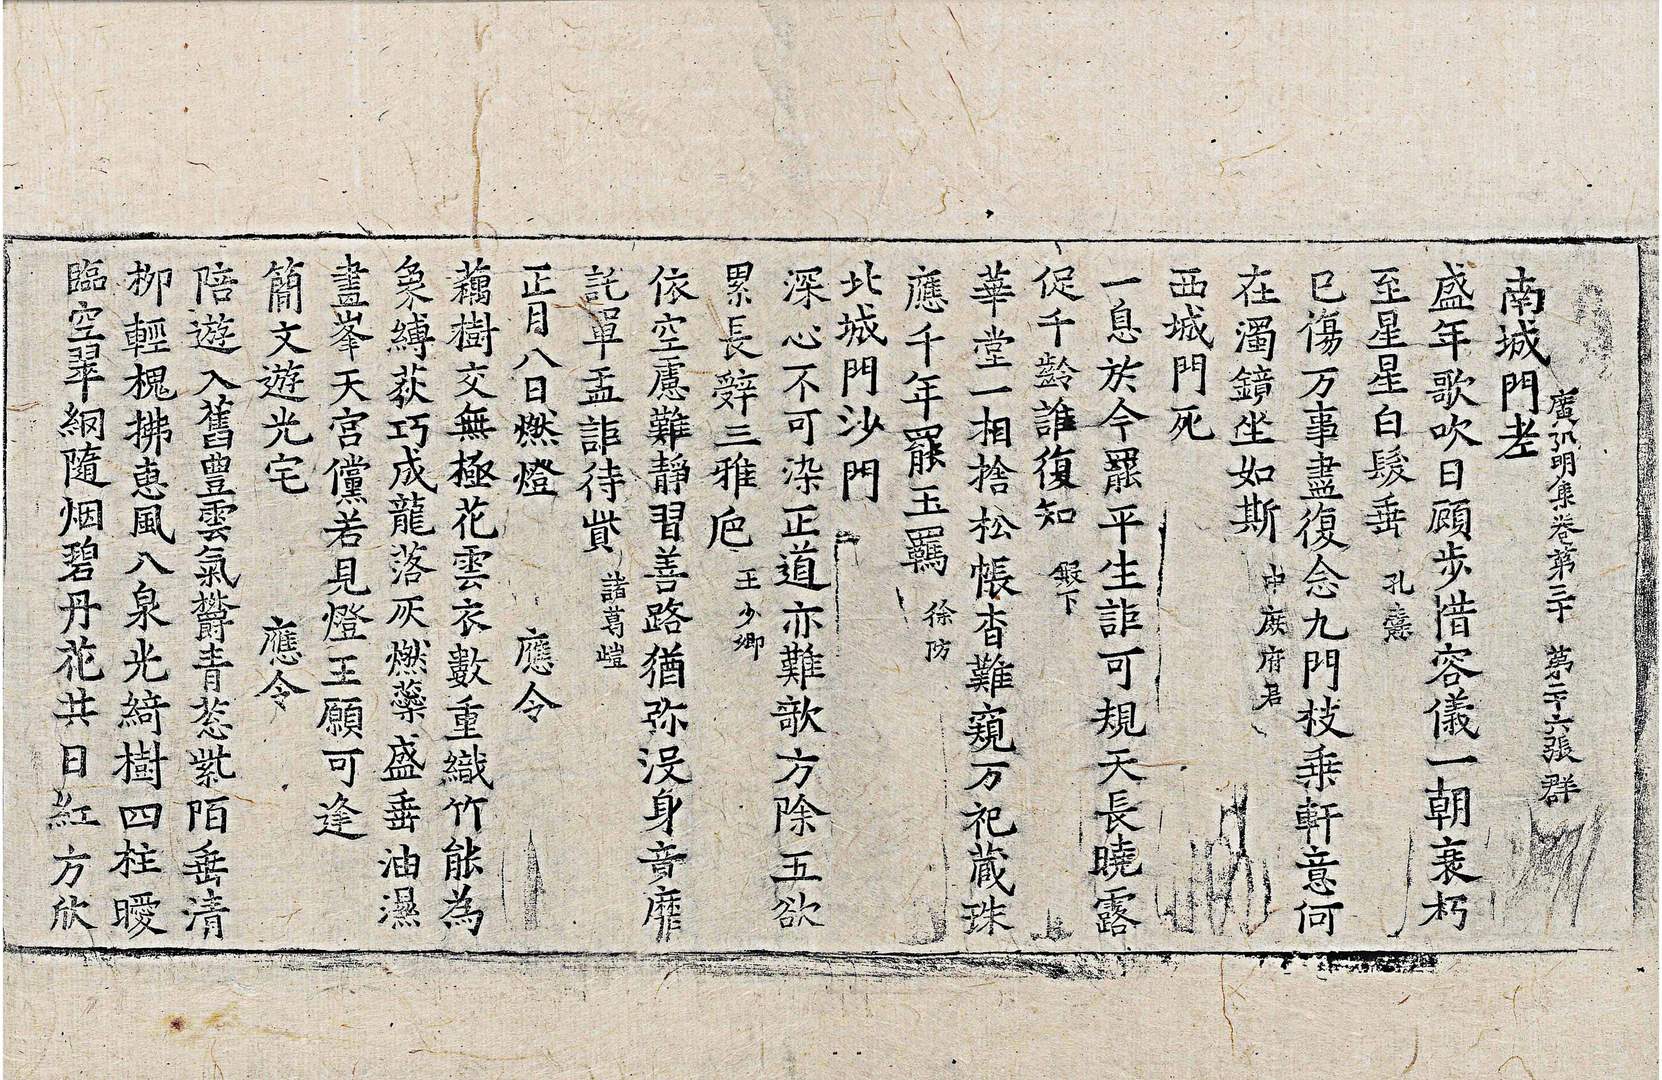 廣弘明集卷第三十 第二十六張 群
南城門老
盛年歌吹日顧步惜容儀一朝衰朽
至星星白髮垂 孔燾
已傷万事盡復念九門枝乗軒意何
在濁鏡坐如斯 中庶府君
西城門死
一息於今罷平生詎可規天長曉露
促千齡誰復知 殿下
華堂一相捨松帳杳難窺万祀蔵珠
應千年罷玉羈 徐防
北城門沙門
深心不可染正道亦難歌方除五欲
累長辝三雅巵 王少卿
依空慮難靜習善路猶弥没身音靡
託單盂詎待貲 諸葛𡺸
正月八日燃燈 應令
藕樹交無極花雲衣數重織竹能為
象縛荻巧成龍落灰燃蘂盛垂油濕
畫峯天宮儻若見燈王願可逢
簡文遊光宅 應令
陪遊入舊豊雲氣欝青葱紫陌垂清
柳輕槐拂惠風八泉光綺樹四柱曖
臨空翠網隨烟碧丹花共日紅方欣